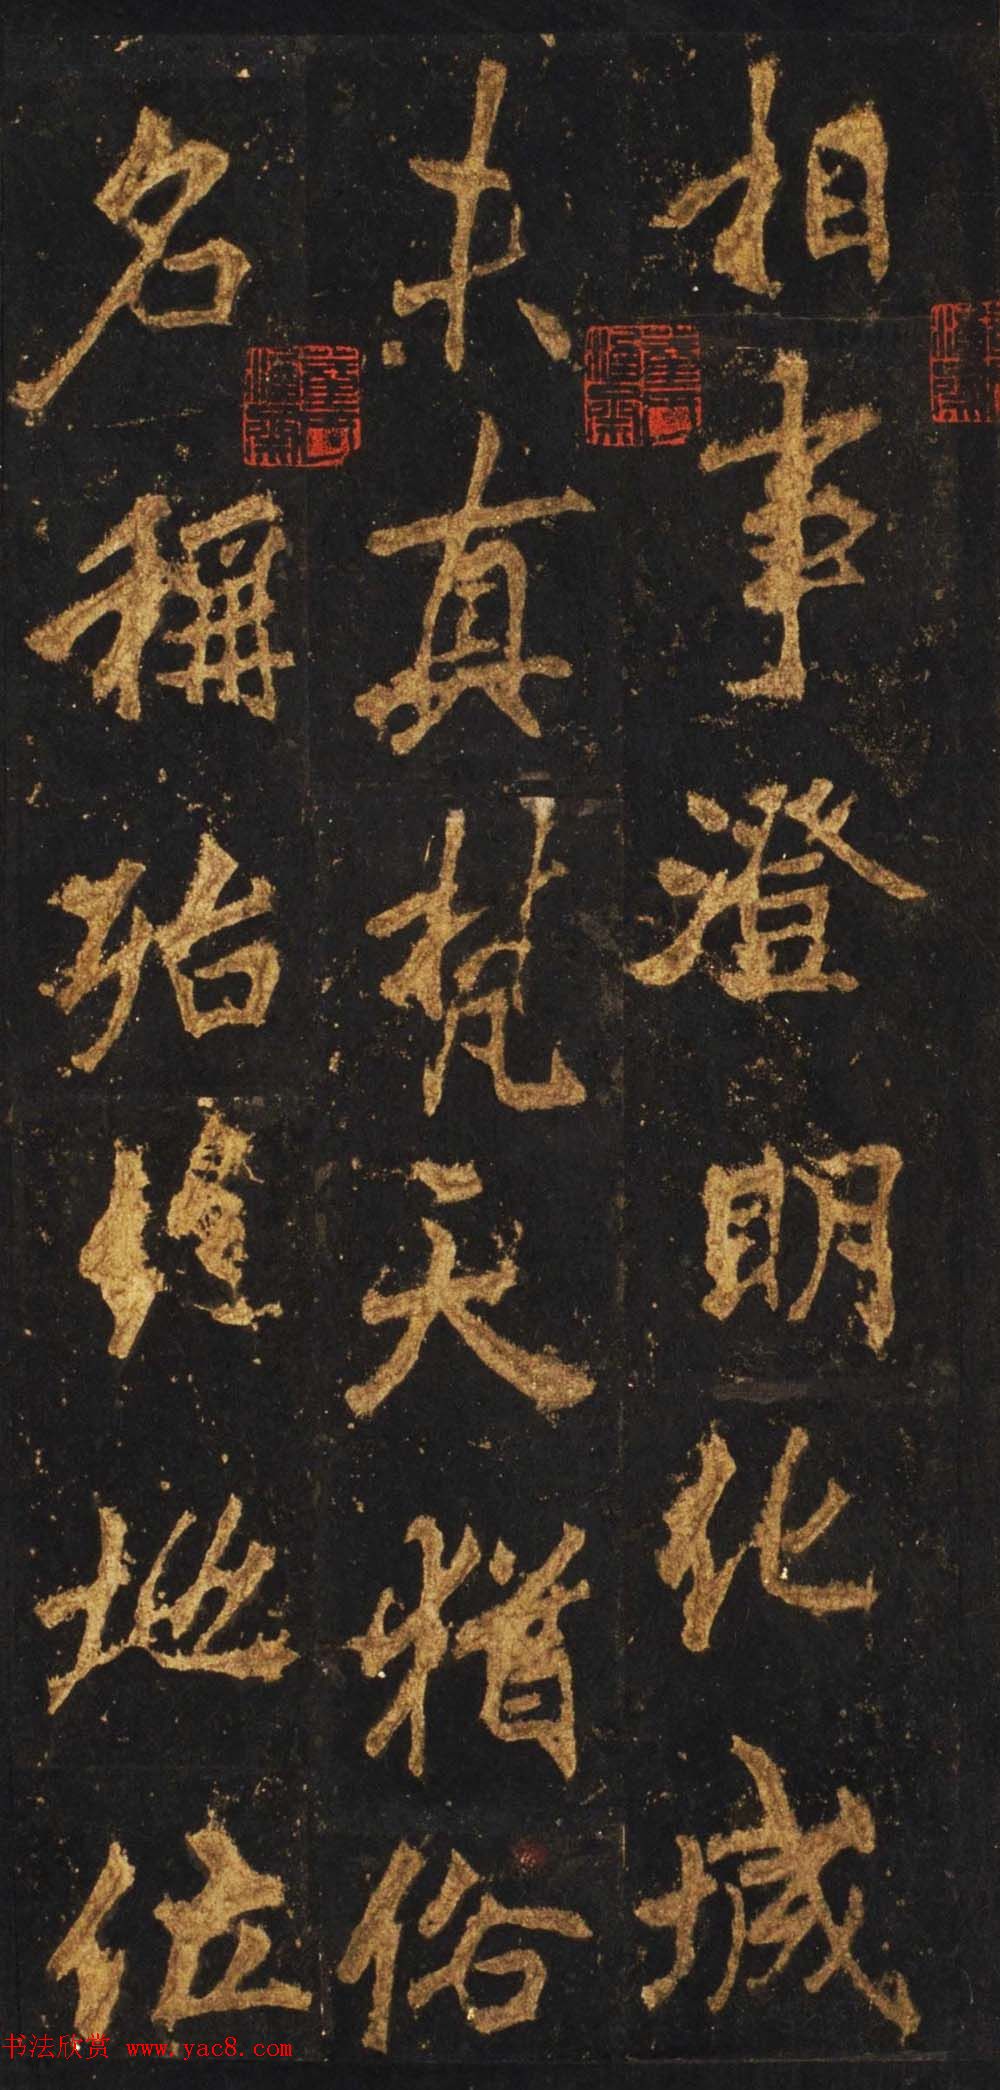 相事澄明化城
未真梵天猶俗
名稱殆地位
书法欣赏 www.yac8.com